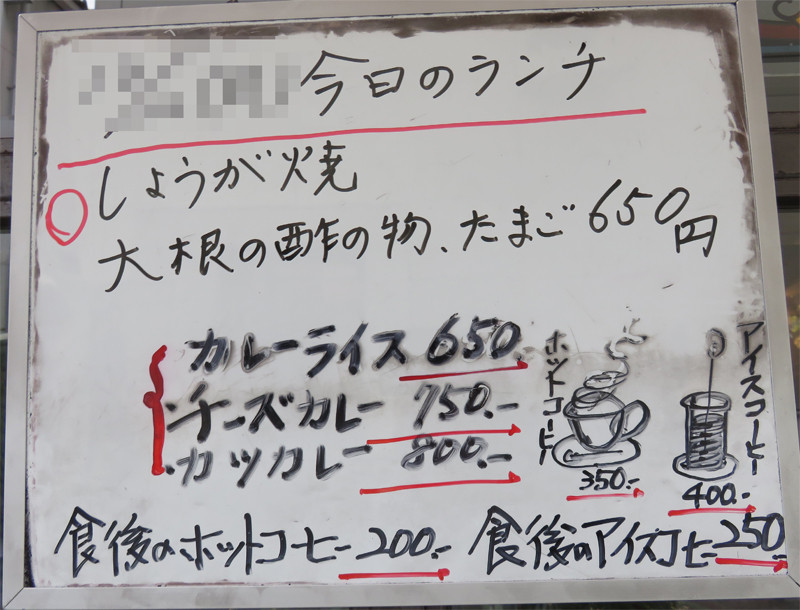 今日のランチ
しょうが焼
大根の酢の物、たまご 650円
カレーライス 650.-
チーズカレー 750.-
カツカレー 800.-
ホットコーヒー
350.-
アイスコーヒー
400.-
食後のホットコーヒー 200.- 食後のアイスコーヒー 250